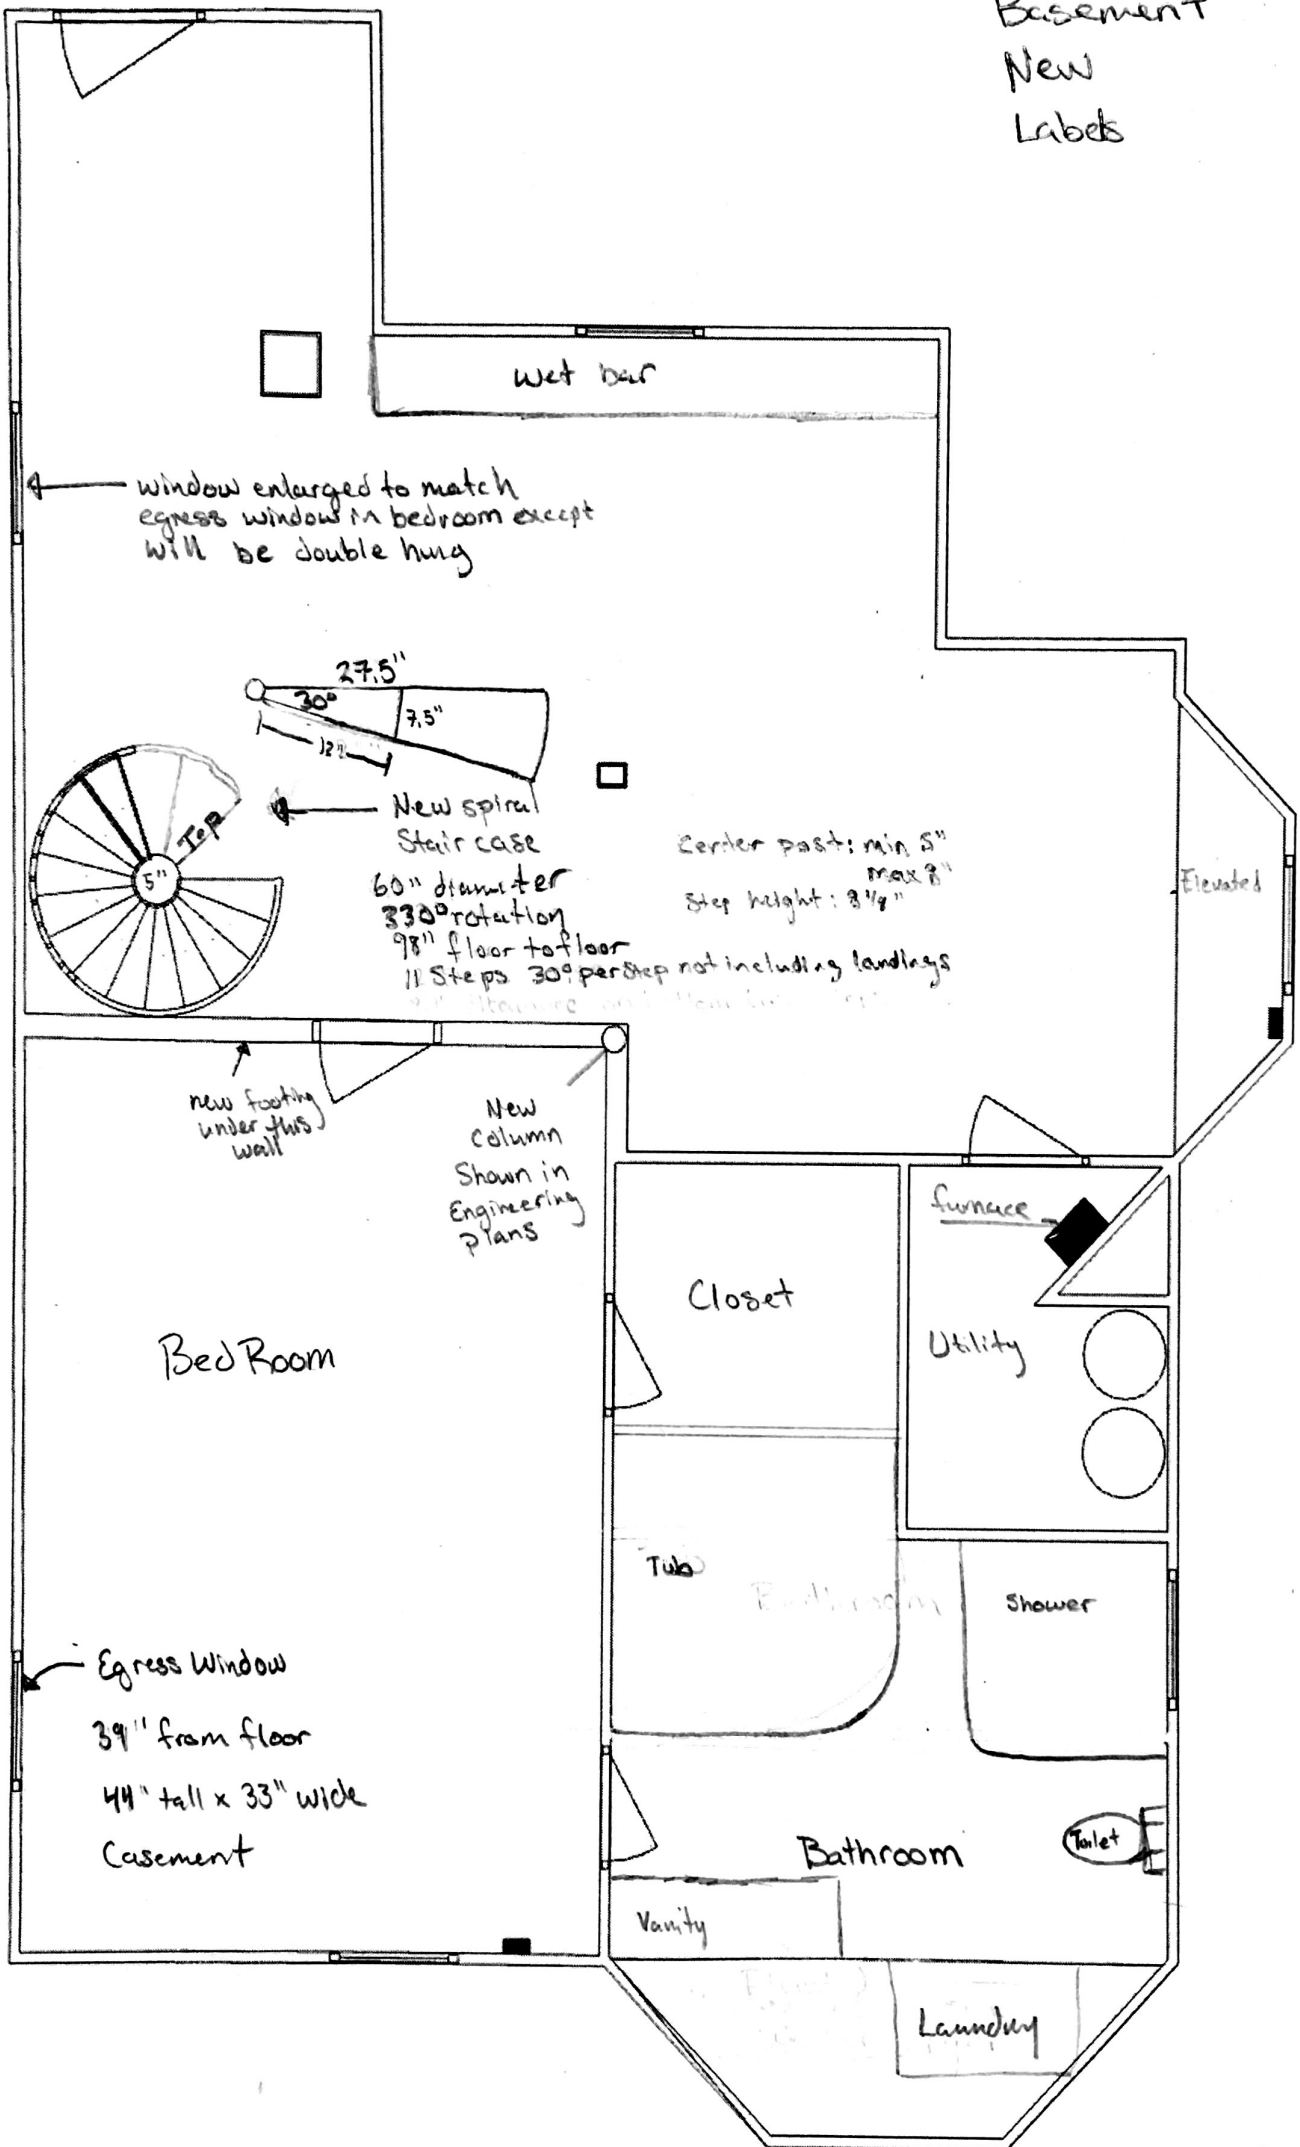 Basement
New
Labels
Wet bar
window enlarged to match
egress window in bedroom except
will be double hung
27.5"
30°
7.5"
12"
New spiral
Stair case
60" diameter
330° rotation
98" floor to floor
11 Steps 30° per step not including landings
Center post: min 5"
max 8"
Step height: 8 1/8"
Top
5"
Elevated
new footing
under this
wall
New
Column
Shown in
Engineering
plans
furnace
Closet
Utility
BedRoom
Tub
Bathroom
Shower
Egress Window
39" from floor
44" tall x 33" wide
Casement
Bathroom
Toilet
Vanity
Laundry